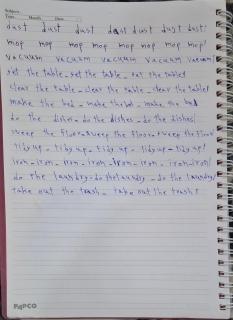 Subject:
Year: Month: Date:
dust dust dust dust dust dust dust!
mop mop mop mop mop mop mop!
vacuum vacuum vacuum vacuum vacuum!
set the table - set the table - set the table!
clear the table - clear the table - clear the table!
make the bed - make the bed - make the bed
do the dishes - do the dishes - do the dishes!
sweep the floor - sweep the floor - sweep the floor!
tidy up - tidy up - tidy up - tidy up - tidy up!
iron - iron - iron - iron - iron - iron - iron - iron!
do the laundry - do the laundry - do the laundry!
take out the trash - take out the trash!
PAPCO